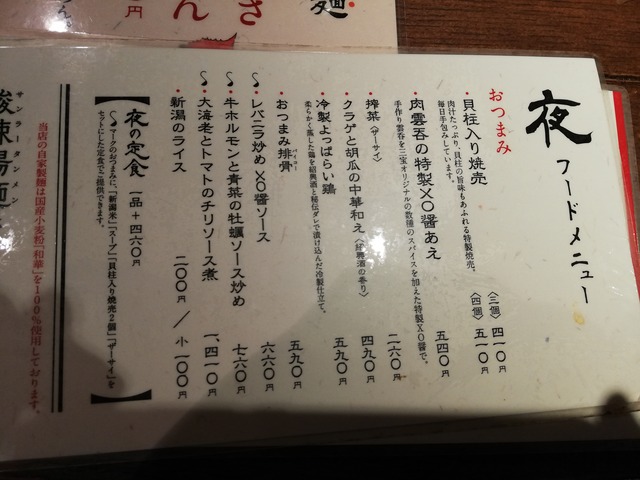 麺
円
夜 フードメニュー
おつまみ
・貝柱入り焼売 〈三個〉 四一〇円
〈四個〉 五一〇円
肉汁たっぷり、貝柱の旨味もあふれる特製焼売。
毎日手包みしています。
・肉雲呑の特製XO醤あえ 五四〇円
手作り雲呑を三宝オリジナルの数種のスパイスを加えた特製XO醤で。
・搾菜〈ザーサイ〉 二六〇円
・クラゲと胡瓜の中華和え〈紹興酒の香り〉 四九〇円
・冷製よっぱらい鶏 五九〇円
柔らかく蒸した鶏を紹興酒と秘伝ダレで漬け込んだ冷製仕立て。
・おつまみ排骨 五九〇円
パイコー
・レバニラ炒め XO醤ソース 六六〇円
・牛ホルモンと青菜の牡蠣ソース炒め 七六〇円
・大海老とトマトのチリソース煮 一、四一〇円
・新潟のライス 二〇〇円／小一〇〇円
【夜の定食 一品+四六〇円
マークのおつまみに、「新潟米」「スープ」「貝柱入り焼売2個」「ザーサイ」を
セットにした定食でご提供できます。】
当店の自家製麺は国産小麦粉「和華」を100%使用しております。
サンラータンメン
酸辣湯麺